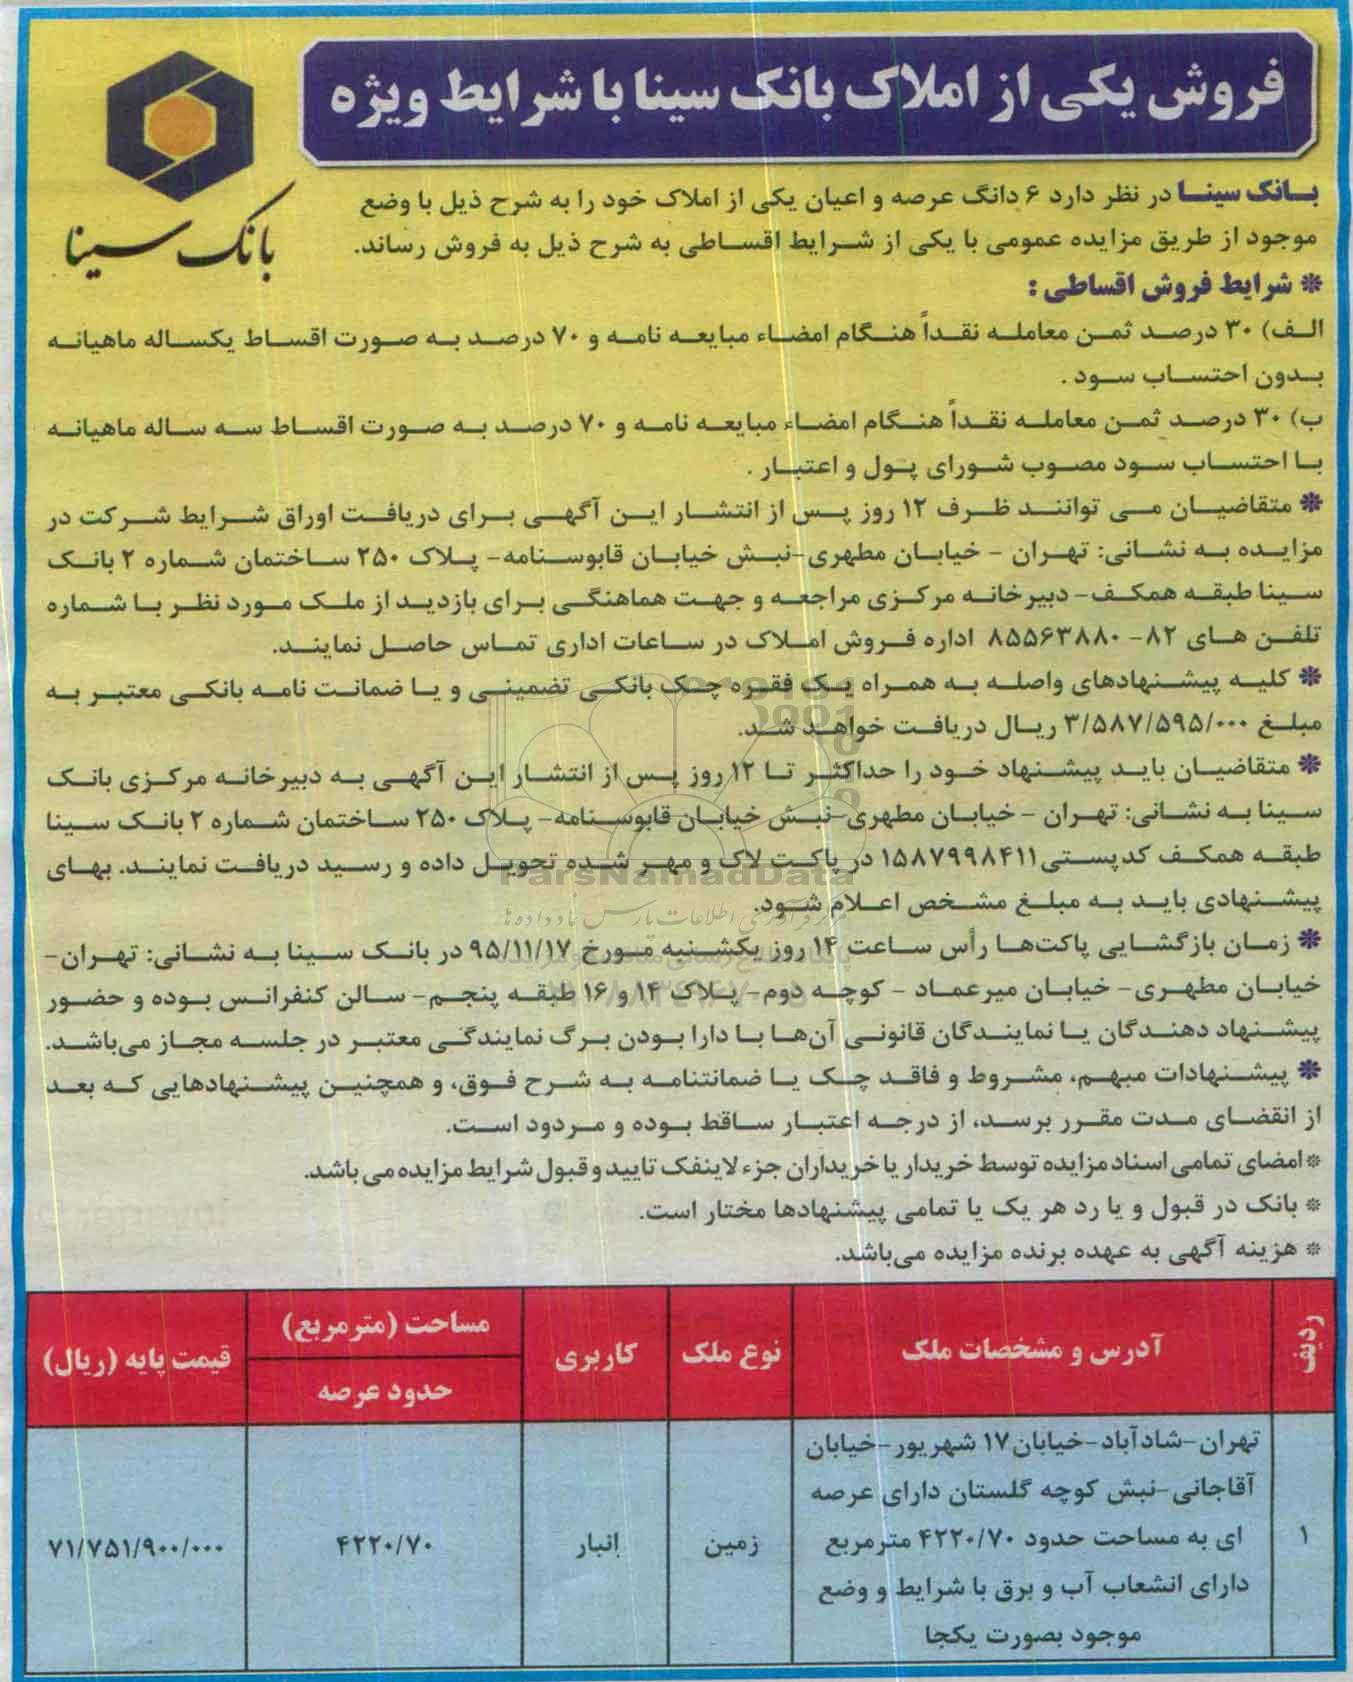 فروش یکی از املاک بانک سینا با شرایط ویژه
بانک سینا
بانک سینا در نظر دارد ۶ دانگ عرصه و اعیان یکی از املاک خود را به شرح ذیل با وضع
موجود از طریق مزایده عمومی با یکی از شرایط اقساطی به شرح ذیل به فروش رساند.
* شرایط فروش اقساطی :
الف) ۳۰ درصد ثمن معامله نقداً هنگام امضاء مبایعه نامه و ۷۰ درصد به صورت اقساط یکساله ماهیانه
بدون احتساب سود .
ب) ۳۰ درصد ثمن معامله نقداً هنگام امضاء مبایعه نامه و ۷۰ درصد به صورت اقساط سه ساله ماهیانه
با احتساب سود مصوب شورای پول و اعتبار .
* متقاضیان می توانند ظرف ۱۲ روز پس از انتشار این آگهی برای دریافت اوراق شرایط شرکت در
مزایده به نشانی: تهران - خیابان مطهری-نبش خیابان قابوسنامه- پلاک ۲۵۰ ساختمان شماره ۲ بانک
سینا طبقه همکف- دبیرخانه مرکزی مراجعه و جهت هماهنگی برای بازدید از ملک مورد نظر با شماره
تلفن های ۸۲- ۸۵۵۶۳۸۸۰ اداره فروش املاک در ساعات اداری تماس حاصل نمایند.
* کلیه پیشنهادهای واصله به همراه یک فقره چک بانکی تضمینی و یا ضمانت نامه بانکی معتبر به
مبلغ ۳/۵۸۷/۵۹۵/۰۰۰ ریال دریافت خواهد شد.
* متقاضیان باید پیشنهاد خود را حداکثر تا ۱۲ روز پس از انتشار این آگهی به دبیرخانه مرکزی بانک
سینا به نشانی: تهران - خیابان مطهری-نبش خیابان قابوسنامه- پلاک ۲۵۰ ساختمان شماره ۲ بانک سینا
طبقه همکف کدپستی ۱۵۸۷۹۹۸۴۱۱ در پاکت لاک و مهر شده تحویل داده و رسید دریافت نمایند. بهای
پیشنهادی باید به مبلغ مشخص اعلام شود.
* زمان بازگشایی پاکت‌ها رأس ساعت ۱۴ روز یکشنبه مورخ ۹۵/۱۱/۱۷ در بانک سینا به نشانی: تهران-
خیابان مطهری- خیابان میرعماد - کوچه دوم- پلاک ۱۴ و ۱۶ طبقه پنجم- سالن کنفرانس بوده و حضور
پیشنهاد دهندگان یا نمایندگان قانونی آن‌ها با دارا بودن برگ نمایندگی معتبر در جلسه مجاز می‌باشد.
* پیشنهادات مبهم، مشروط و فاقد چک یا ضمانتنامه به شرح فوق، و همچنین پیشنهادهایی که بعد
از انقضای مدت مقرر برسد، از درجه اعتبار ساقط بوده و مردود است.
* امضای تمامی اسناد مزایده توسط خریدار یا خریداران جزء لاینفک تایید و قبول شرایط مزایده می باشد.
* بانک در قبول و یا رد هر یک یا تمامی پیشنهادها مختار است.
* هزینه آگهی به عهده برنده مزایده می‌باشد.
ParsNamadData
ردیف
آدرس و مشخصات ملک
نوع ملک
کاربری
مساحت (مترمربع)
حدود عرصه
قیمت پایه (ریال)
۱
تهران-شادآباد-خیابان ۱۷ شهریور-خیابان
آقاجانی-نبش کوچه گلستان دارای عرصه
ای به مساحت حدود ۴۲۲۰/۷۰ مترمربع
دارای انشعاب آب و برق با شرایط و وضع
موجود بصورت یکجا
زمین
انبار
۴۲۲۰/۷۰
۷۱/۷۵۱/۹۰۰/۰۰۰